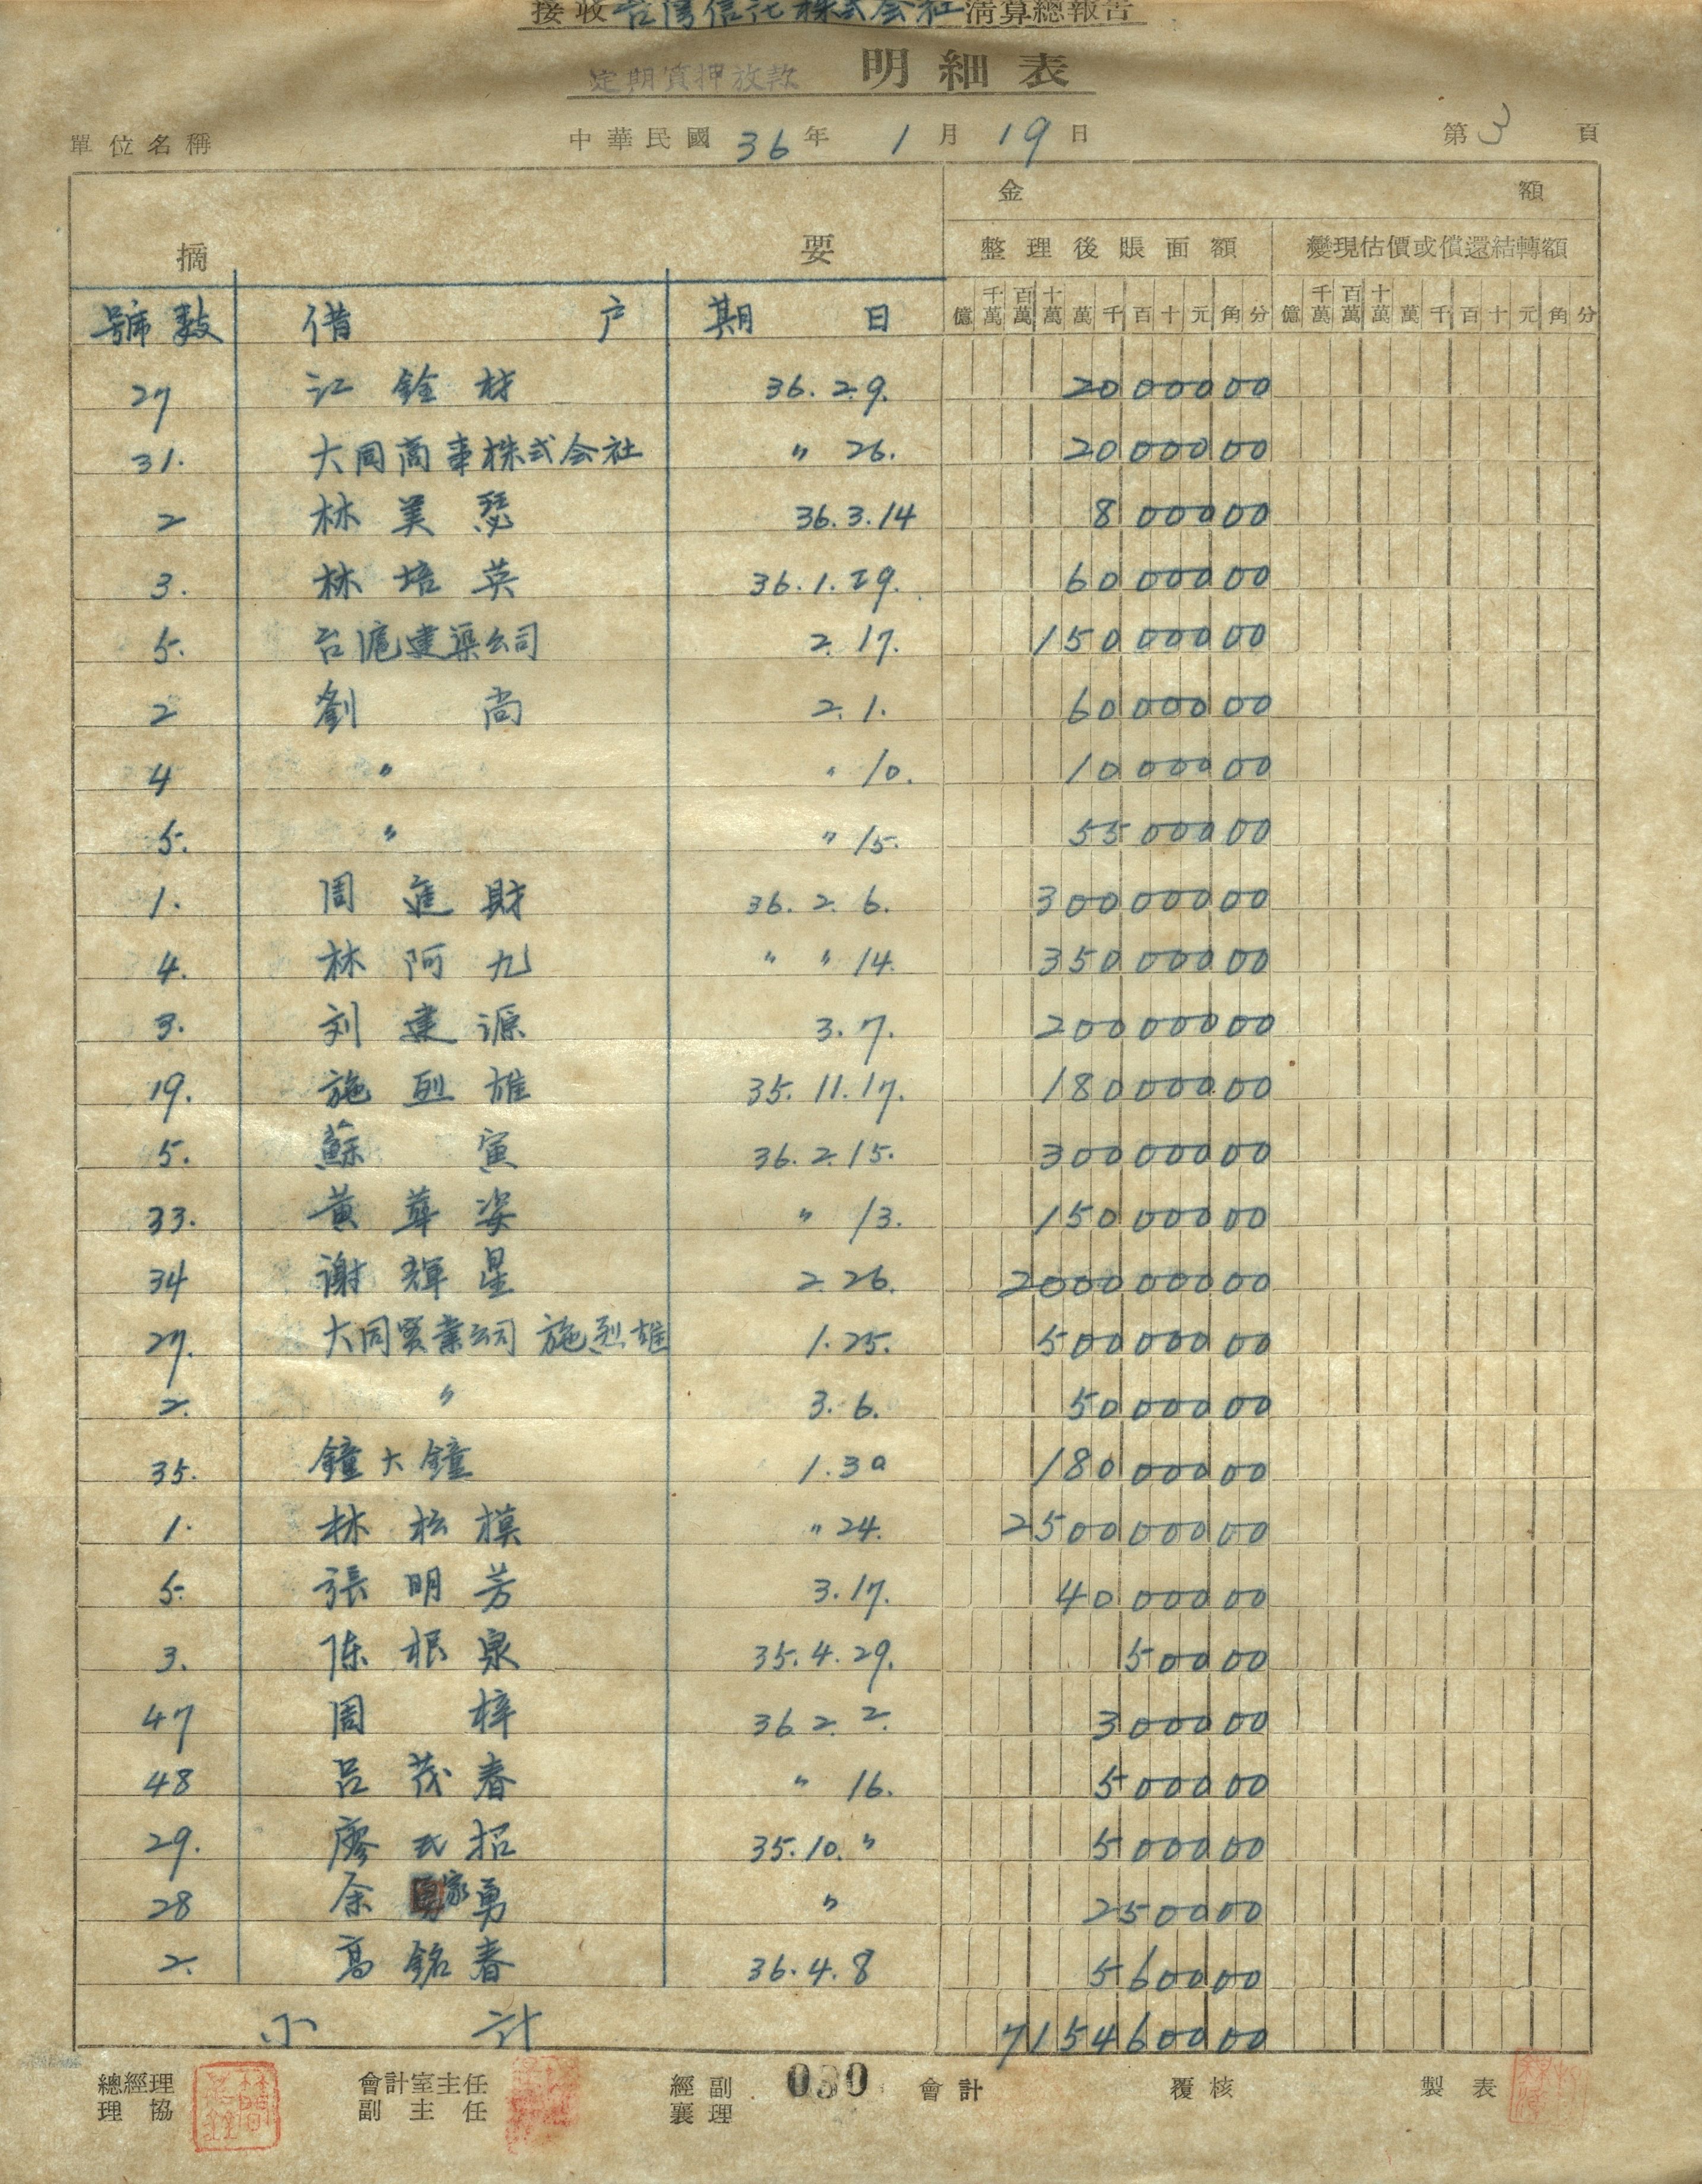 接收台灣信託株式会社清算總報告
定期質押放款 明細表
單位名稱 中華民國36年1月19日 第3頁
金額
摘要 整理後賬面額 變現估價或償還結轉額
號数 借户 期日 億 千萬 百萬 十萬 萬 千 百 十 元 角 分 億 千萬 百萬 十萬 萬 千 百 十 元 角 分
27 江銓材 36.2.9. 20000 00 00
31. 大同商事株式会社 〃 26. 20000 00
2 林美瑟 36.3.14 8000 00
3. 林培英 36.1.29. 60000 00
5. 台滬建築公司 2.17. 150000 00
2 劉尚 2.1. 60000 00
4 〃 〃 10. 10000 00
5. 〃 〃 15. 55000 00
1. 周進財 36.2.6. 300000 00
4. 林阿九 〃 〃 14. 350000 00
3. 刘建源 3.7. 200000 00
19. 施烈雄 35.11.17. 180000 00
5. 蘇寅 36.2.15. 300000 00
33. 黃華姿 〃 13. 150000 00
34 谢輝星 2.26. 2000000 00
27. 大同實業公司 施烈雄 1.25. 500000 00
2. 〃 3.6. 50000 00
35. 鐘大鐘 1.30 180000 00
1. 林松模 〃 24. 2500000 00
5. 張明芳 3.17. 40000 00
3. 陈根泉 35.4.29. 500 00
47 周梓 36.2.2. 3000 00
48 呂茂春 〃 16. 5000 00
29. 廖氏招 35.10.〃 5000 00
28 余家勇 〃 2500 00
2. 高銘春 36.4.8 5600 00
小計 7154600 00
總經理 會計室主任 經副 030 會計 覆核 製表
理協 副主任 襄理